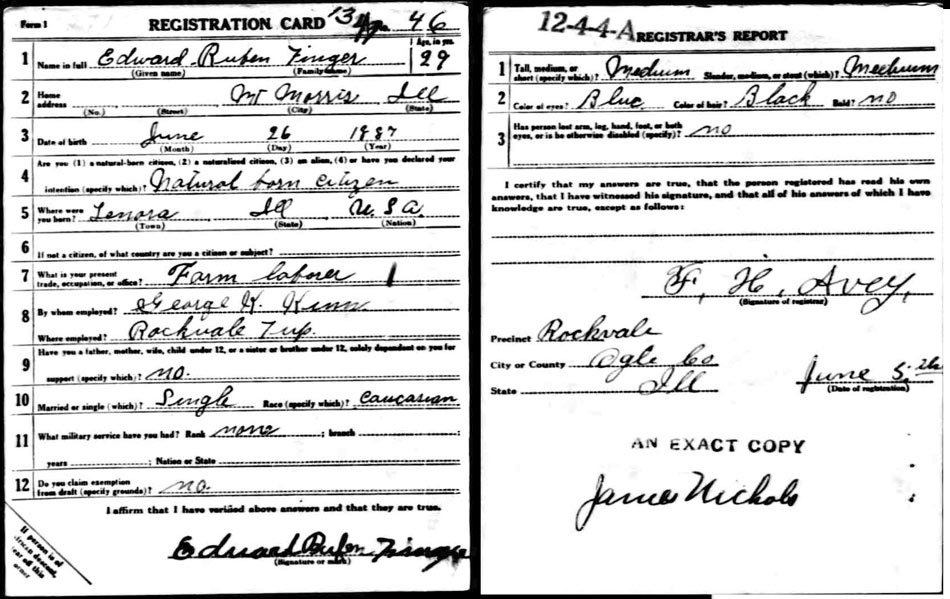 Form 1
REGISTRATION CARD
46
1 Name in full Edward Ruben Finger
Age, in yrs. 29
(Given name) (Family name)
2 Home address Mt Morris Ill
(No.) (Street) (City) (State)
3 Date of birth June 26 1887
(Month) (Day) (Year)
Are you (1) a natural-born citizen, (2) a naturalized citizen, (3) an alien, (4) or have you declared your
4 intention (specify which)? Natural born citizen
5 Where were you born? Lenora Ill U S A
(Town) (State) (Nation)
6 If not a citizen, of what country are you a citizen or subject?
7 What is your present trade, occupation, or office? Farm laborer
8 By whom employed? George K.
Where employed? Rockvale Twp.
9 Have you a father, mother, wife, child under 12, or a sister or brother under 12, solely dependent on you for
support (specify which)? no.
10 Married or single (which)? Single Race (specify which)? Caucasian
11 What military service have you had? Rank none ; branch ;
years ; Nation or State
12 Do you claim exemption from draft (specify grounds)? no.
I affirm that I have verified above answers and that they are true.
Edward Ruben Finger
(Signature or mark)
If person is of
African descent,
tear off this
corner
12-4-4-A REGISTRAR'S REPORT
1 Tall, medium, or short (specify which)? Medium Slender, medium, or stout (which)? Medium
2 Color of eyes? Blue Color of hair? Black Bald? no
3 Has person lost arm, leg, hand, foot, or both eyes, or is he otherwise disabled (specify)? no
I certify that my answers are true, that the person registered has read his own
answers, that I have witnessed his signature, and that all of his answers of which I have
knowledge are true, except as follows:
F. H. Avey.
(Signature of registrar)
Precinct Rockvale
City or County Ogle Co
State Ill June 5. th
(Date of registration)
AN EXACT COPY
James Nichols